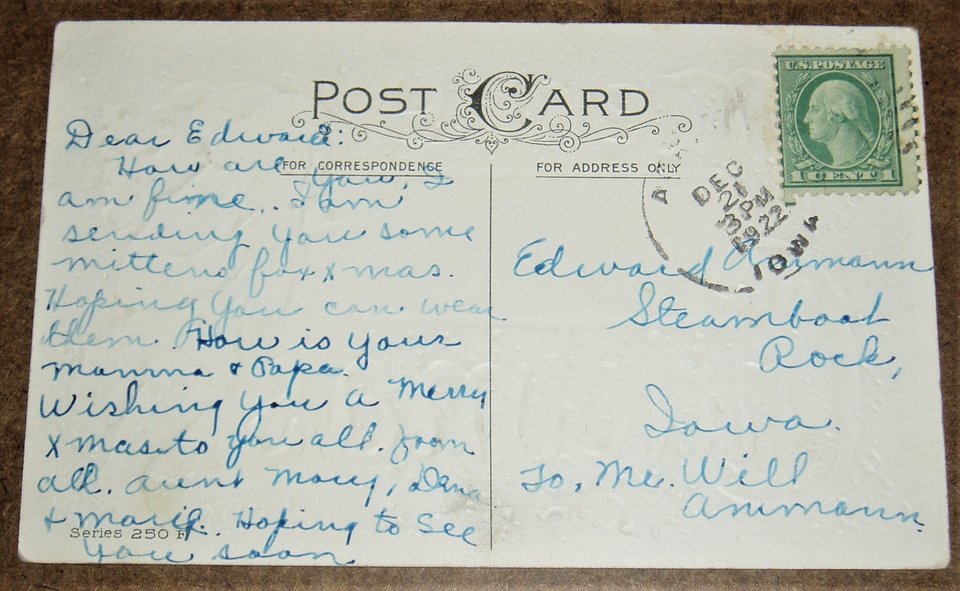 POST CARD
FOR CORRESPONDENCE
FOR ADDRESS ONLY
U.S. POSTAGE
1 CENT 1
DEC
21
3 PM
1922
IOWA
Dear Edward:
How are you. I
am fine.. I am
sending you some
mittens for x mas.
Hoping you can wear
them How is your
mamma & Papa.
Wishing you a Merry
x mas to you all. from
all. aunt Mary, Dena
& Marie. Hoping to See
you soon
Series 250 F
Edward Ammann
Steamboat
Rock,
Iowa.
To, Mr. Will
Ammann.